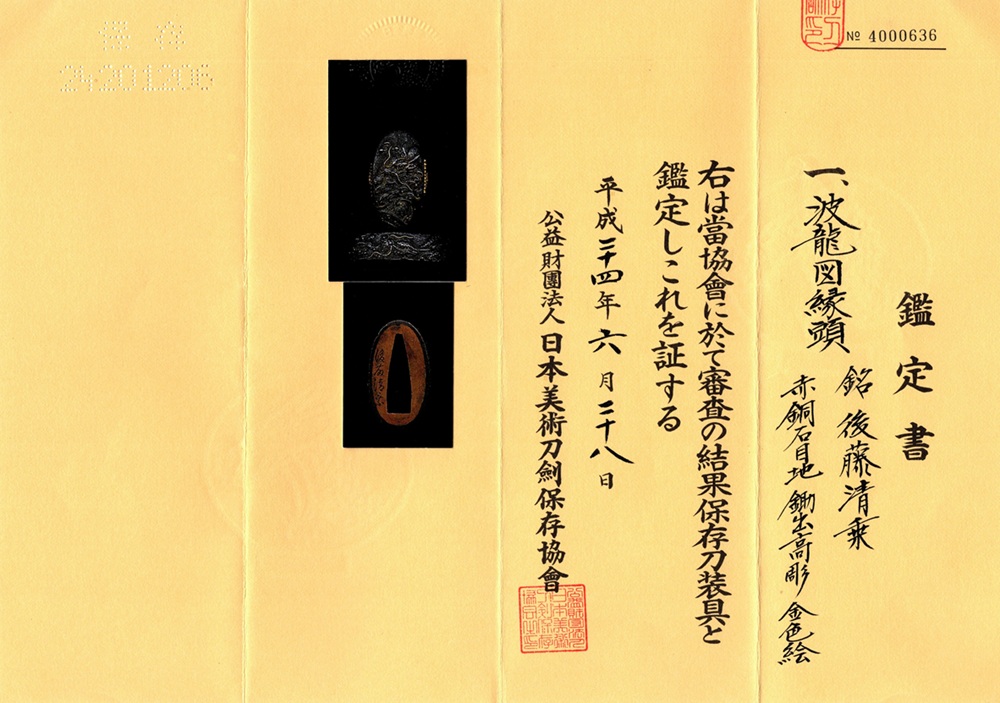 No 4000636
鑑定書
一、波龍図縁頭
銘 後藤清乗
赤銅石目地 鋤出高彫 金色絵
右は當協會に於て審査の結果保存刀装具と
鑑定しこれを証する
平成二十四年六月二十八日
公益財團法人日本美術刀劍保存協會
保存
24201206